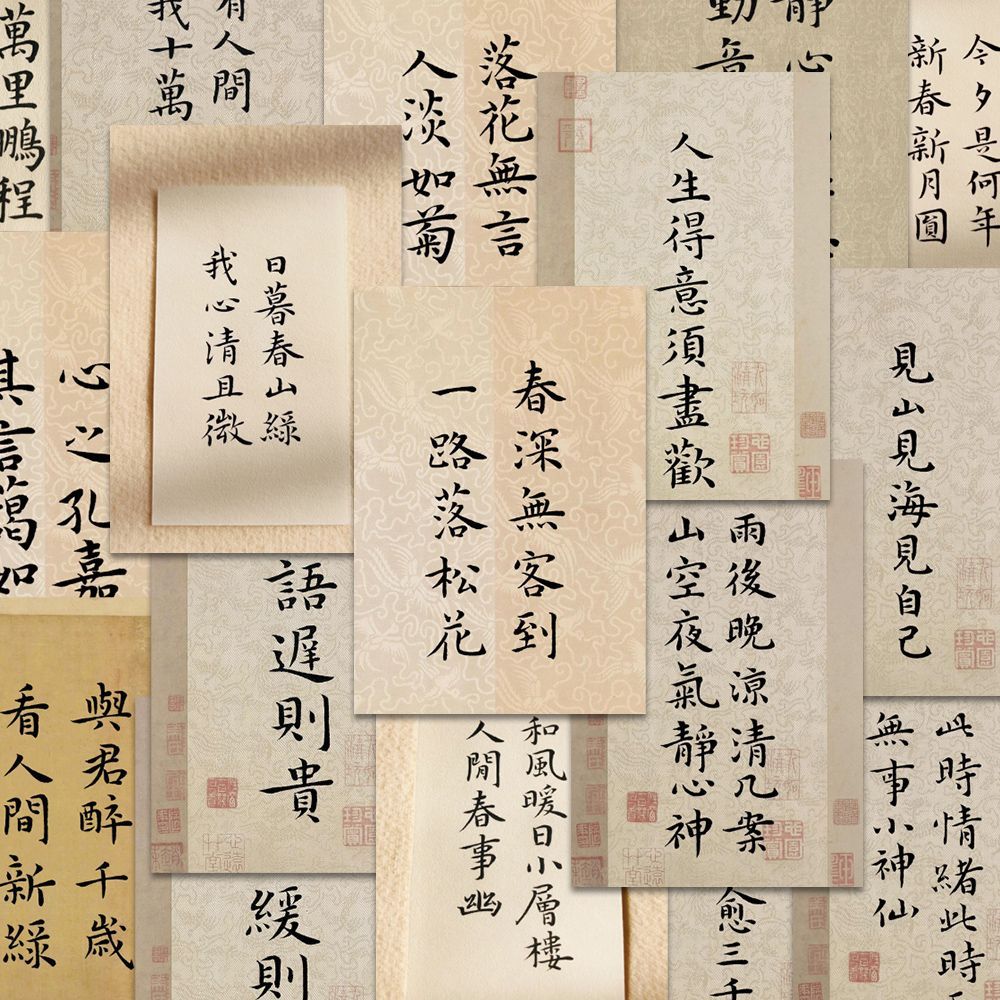 萬里鵬程
有人間
我十萬
落花無言
人淡如菊
靜心
動音
今夕是何年
新春新月圓
日暮春山綠
我心清且微
人生得意須盡歡
見山見海見自己
心之孔嘉
其言藹如
春深無客到
一路落松花
語遲則貴
雨後晚涼清几案
山空夜氣靜心神
與君醉千歲
看人間新綠
和風暖日小層樓
人閒春事幽
此時情緒此時
無事小神仙
緩則
愈三千